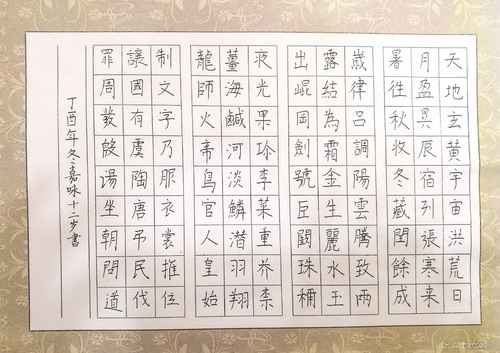 天地玄黄宇宙洪荒日
月盈昃辰宿列張寒来
暑往秋收冬藏閏餘成
歲律呂調陽雲騰致雨
露結為霜金生麗水玉
出崐岡劍號巨闕珠稱
夜光果珍李菜重芥柰
薑海鹹河淡鱗潛羽翔
龍師火帝鳥官人皇始
制文字乃服衣裳推位
讓國有虞陶唐吊民伐
罪周發殷湯坐朝問道
丁酉年冬嘉咏十二岁書